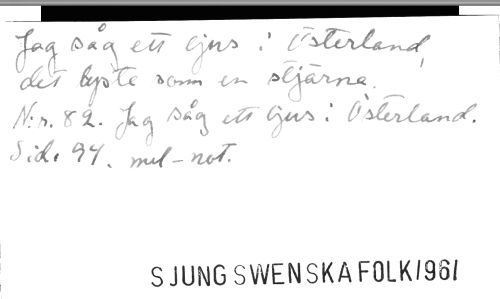 Jag såg ett ljus i Österland,
det lyste som en stjärna.
N:r. 82. Jag såg ett ljus i Österland.
Sid. 94. mel-not.
SJUNG SWENSKA FOLK/1961